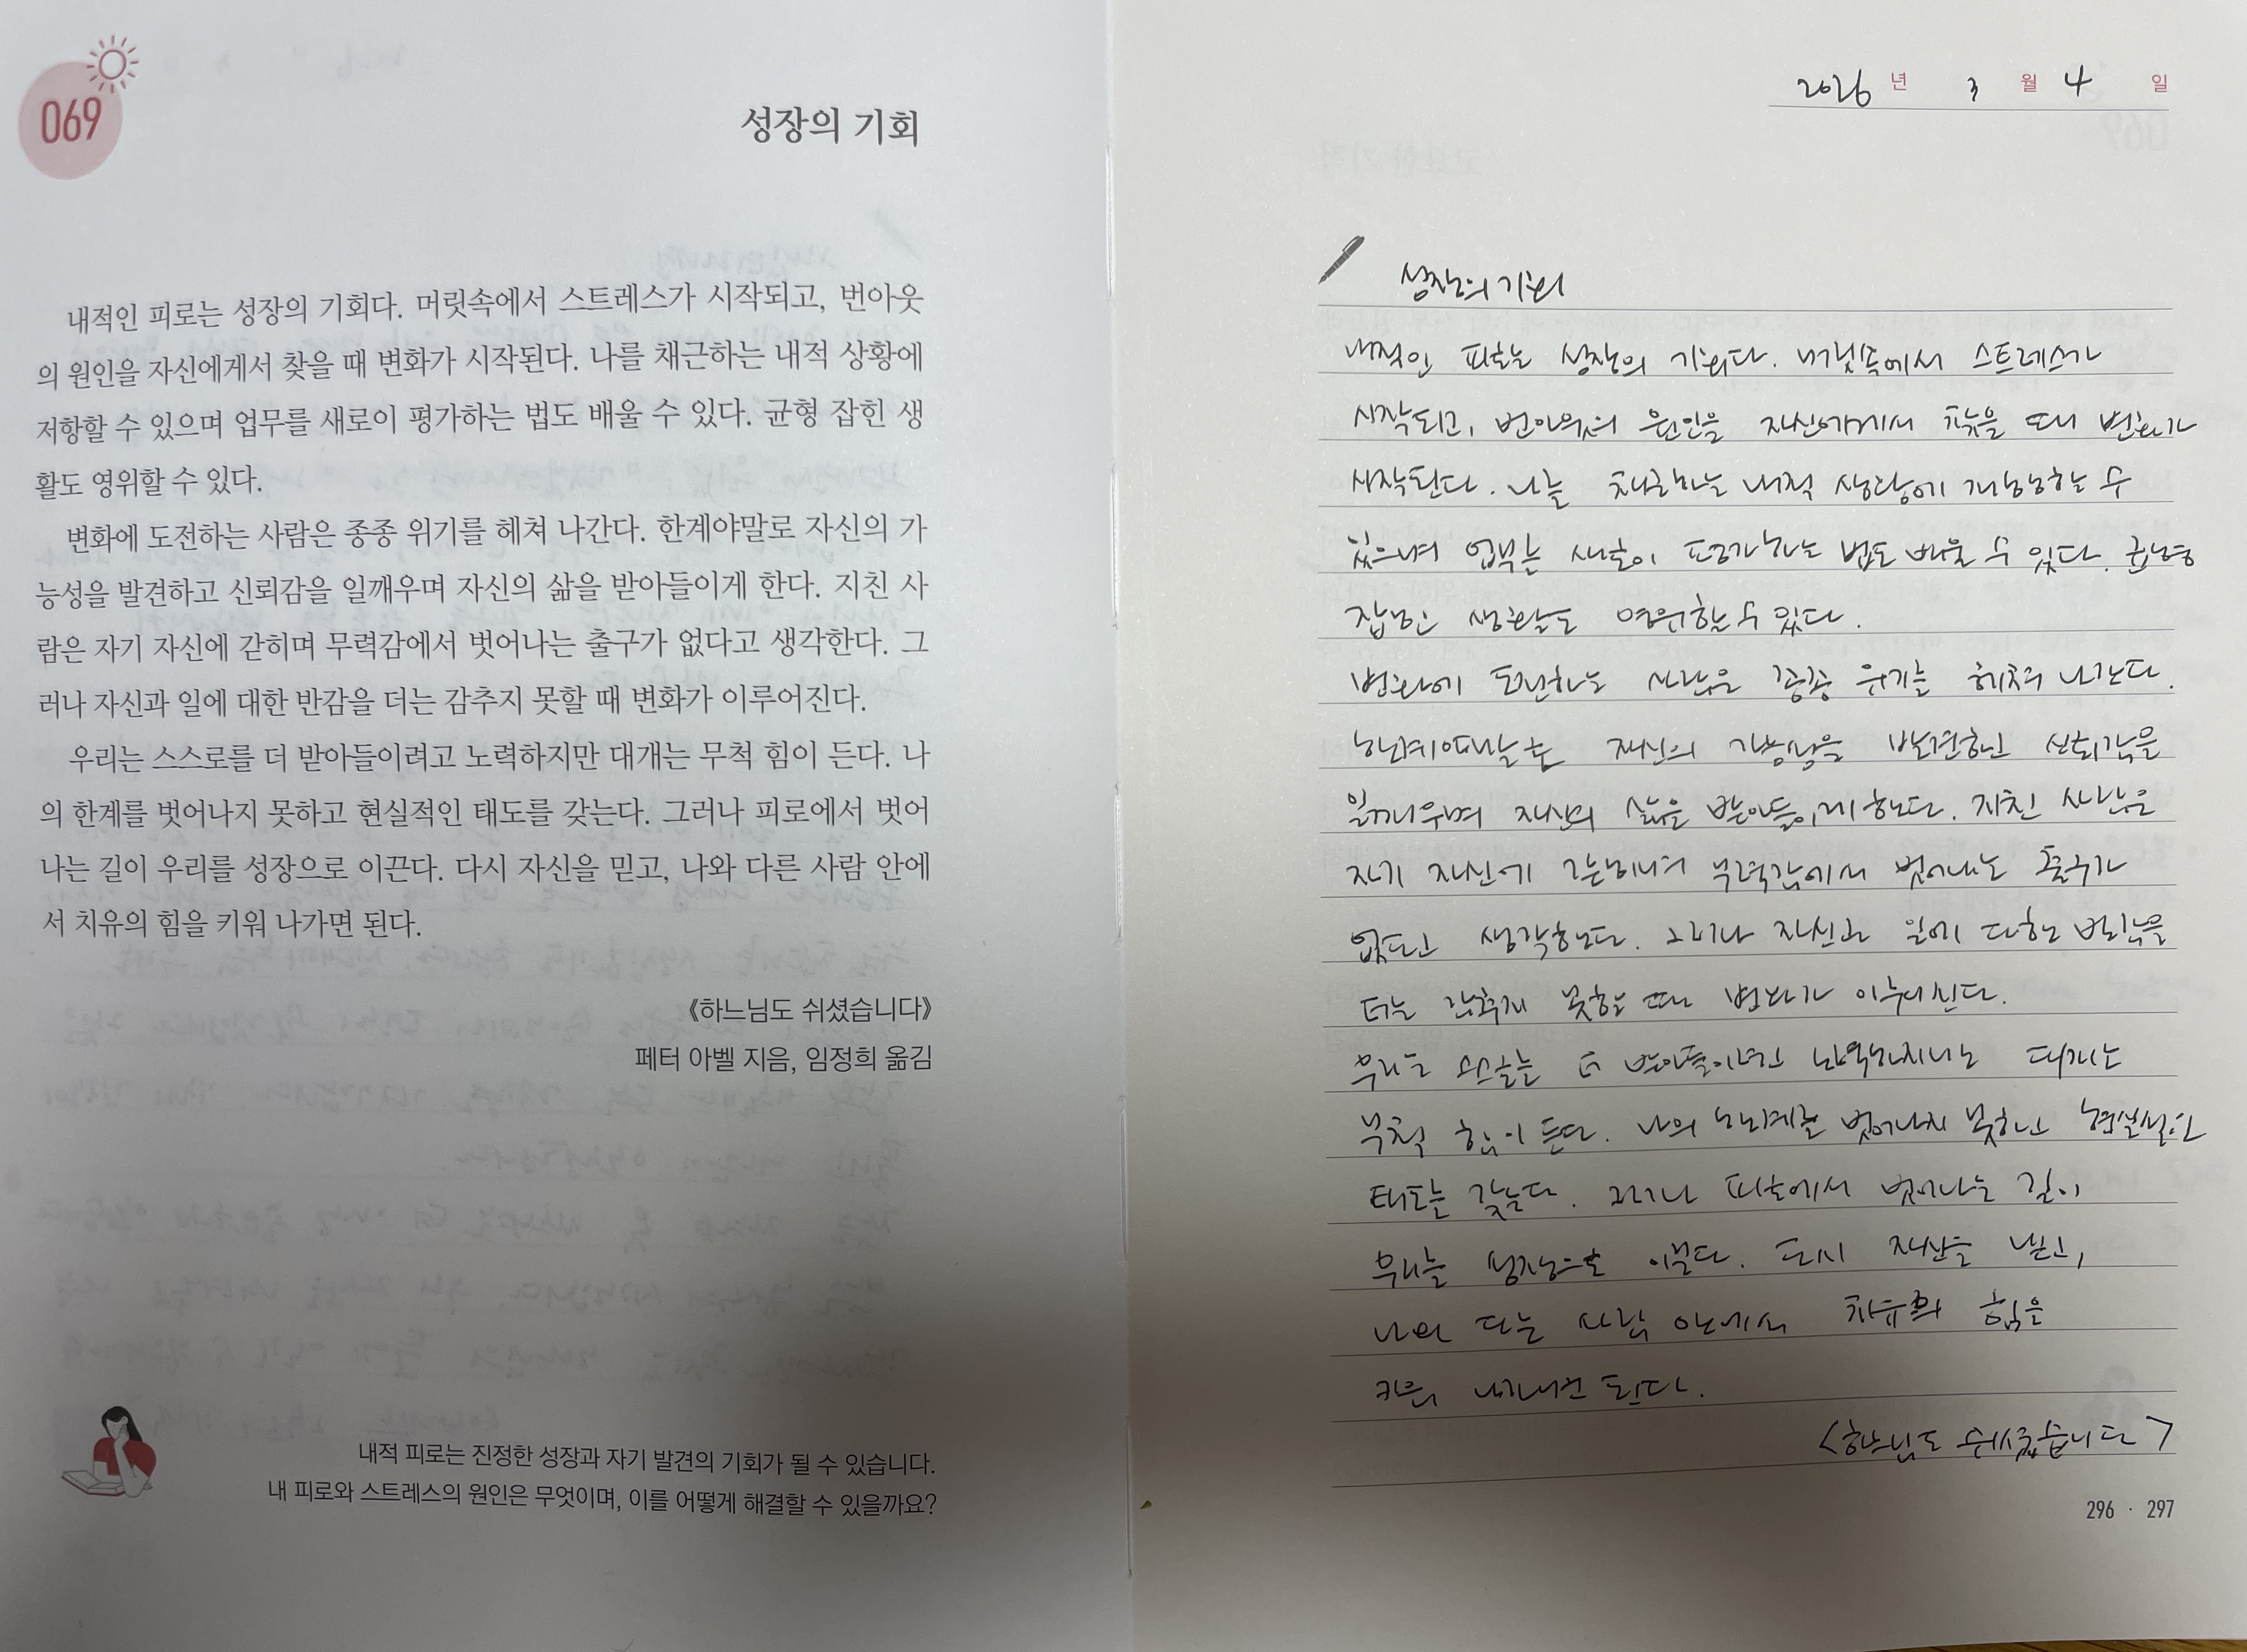 069
성장의 기회
내적인 피로는 성장의 기회다. 머릿속에서 스트레스가 시작되고, 번아웃
의 원인을 자신에게서 찾을 때 변화가 시작된다. 나를 채근하는 내적 상황에
저항할 수 있으며 업무를 새로이 평가하는 법도 배울 수 있다. 균형 잡힌 생
활도 영위할 수 있다.
변화에 도전하는 사람은 종종 위기를 헤쳐 나간다. 한계야말로 자신의 가
능성을 발견하고 신뢰감을 일깨우며 자신의 삶을 받아들이게 한다. 지친 사
람은 자기 자신에 갇히며 무력감에서 벗어나는 출구가 없다고 생각한다. 그
러나 자신과 일에 대한 반감을 더는 감추지 못할 때 변화가 이루어진다.
우리는 스스로를 더 받아들이려고 노력하지만 대개는 무척 힘이 든다. 나
의 한계를 벗어나지 못하고 현실적인 태도를 갖는다. 그러나 피로에서 벗어
나는 길이 우리를 성장으로 이끈다. 다시 자신을 믿고, 나와 다른 사람 안에
서 치유의 힘을 키워 나가면 된다.
《하느님도 쉬셨습니다》
페터 아벨 지음, 임정희 옮김
내적 피로는 진정한 성장과 자기 발견의 기회가 될 수 있습니다.
내 피로와 스트레스의 원인은 무엇이며, 이를 어떻게 해결할 수 있을까요?
2026 년 3 월 4 일
성장의 기회
내적인 피로는 성장의 기회다. 머릿속에서 스트레스가
시작되고, 번아웃의 원인을 자신에게서 찾을 때 변화가
시작된다. 나를 채근하는 내적 상황에 저항할 수
있으며 업무를 새로이 평가하는 법도 배울 수 있다. 균형
잡힌 생활도 영위할 수 있다.
변화에 도전하는 사람은 종종 위기를 헤쳐 나간다.
한계야말로 자신의 가능성을 발견하고 신뢰감을
일깨우며 자신의 삶을 받아들이게 한다. 지친 사람은
자기 자신에 갇히며 무력감에서 벗어나는 출구가
없다고 생각한다. 그러나 자신과 일에 대한 반감을
더는 감추지 못할 때 변화가 이루어진다.
우리는 스스로를 더 받아들이려고 노력하지만 대개는
무척 힘이 든다. 나의 한계를 벗어나지 못하고
태도를 갖는다. 그러나 피로에서 벗어나는 길이
우리를 성장으로 이끈다. 다시 자신을 믿고,
나와 다른 사람 안에서 치유의 힘을
키워 나가면 된다.
<하느님도 쉬셨습니다>
296 · 297